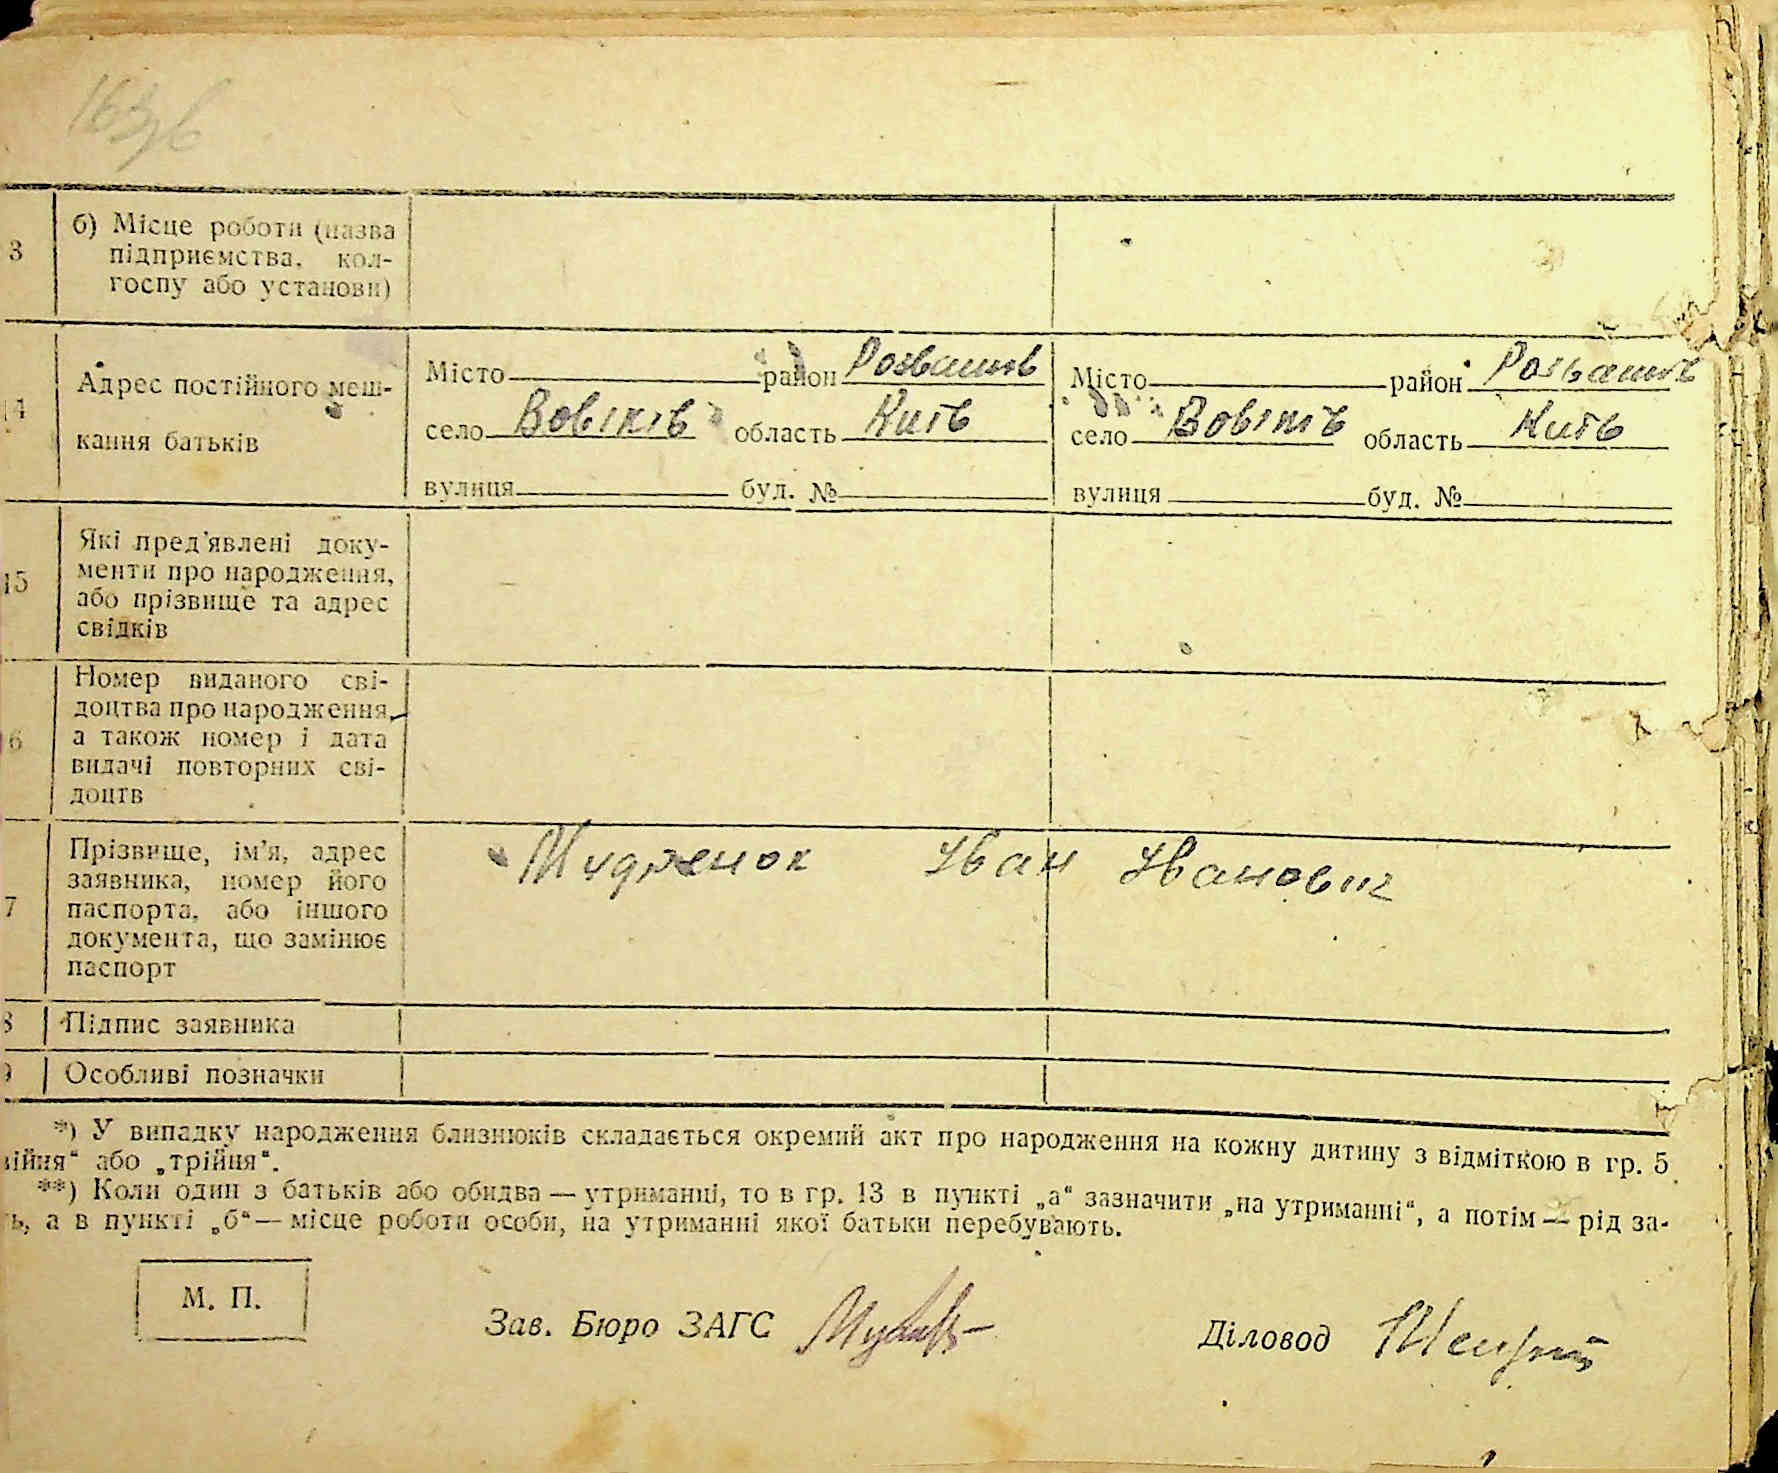 163зв
3 б) Місце роботи (назва
підприємства, кол-
госпу або установи)
14 Адрес постійного меш-
кання батьків
Місто район Розважів
село Вовчків область Київ
вулиця буд. №
Місто район Розважів
село Вовчків область Київ
вулиця буд. №
15 Які пред'явлені доку-
менти про народження,
або прізвище та адрес
свідків
6 Номер виданого сві-
доцтва про народження,
а також номер і дата
видачі повторних сві-
доцтв
7 Прізвище, ім'я, адрес
заявника, номер його
паспорта, або іншого
документа, що замінює
паспорт
Іван Іванович
8 Підпис заявника
9 Особливі позначки
*) У випадку народження близнюків складається окремий акт про народження на кожну дитину з відміткою в гр. 5
війня“ або „трійня“.
**) Коли один з батьків або обидва — утриманці, то в гр. 13 в пункті „а“ зазначити „на утриманні“, а потім — рід за-
ть, а в пункті „б“ — місце роботи особи, на утриманні якої батьки перебувають.
М. П.
Зав. Бюро ЗАГС
Діловод